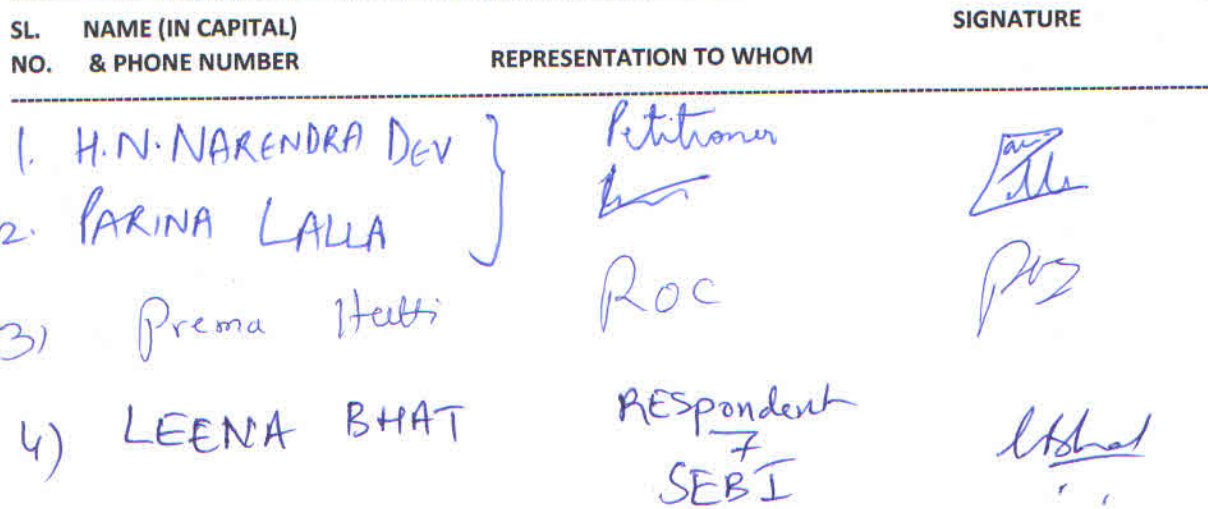 SL. NAME (IN CAPITAL) SIGNATURE
NO. & PHONE NUMBER REPRESENTATION TO WHOM
1. H.N. NARENDRA DEV Petitioner
2. PARINA LALLA
3) Prema Hatti ROC
4) LEENA BHAT RESpondent
7
SEBI